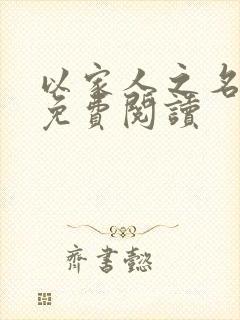 以家人之名
免費閱讀
齊書懿